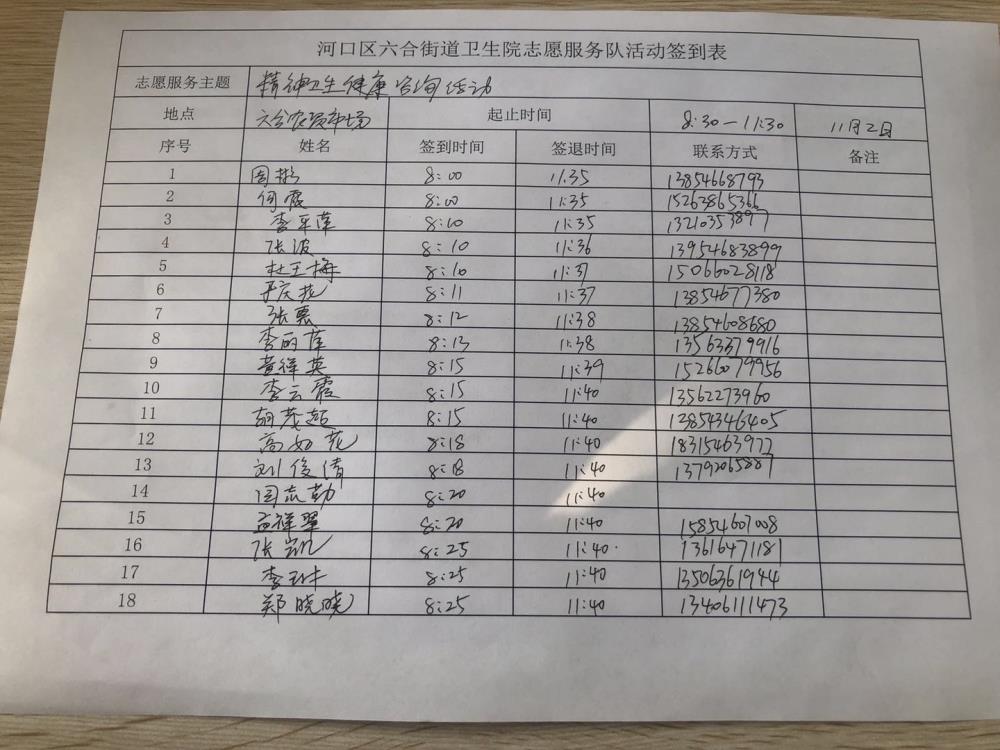 河口区六合街道卫生院志愿服务队活动签到表
志愿服务主题 精神卫生健康咨询活动
地点 六合农贸市场 起止时间 8:30—11:30 11月2日
序号 姓名 签到时间 签退时间 联系方式 备注
1 周彬 8:00 11:35 13854668793
2 何霞 8:00 11:35 15263865366
3 李平萍 8:10 11:35 13210353897
4 张波 8:10 11:36 13954683899
5 杜玉梅 8:10 11:37 15066028118
6 8:11 11:37 13854677380
7 张惠 8:12 11:38 13854608680
8 李丽萍 8:13 11:38 13563379916
9 黄祥英 8:15 11:39 15266079956
10 李云霞 8:15 11:40 13562273960
11 胡茂超 8:15 11:40 13854346405
12 高如花 8:18 11:40 18315463977
13 刘俊倩 8:18 11:40 13792065887
14 闫志勤 8:20 11:40
15 孟祥翠 8:20 11:40 15854607008
16 张凯 8:25 11:40 13616471181
17 8:25 11:40 13506361944
18 郑晓晓 8:25 11:40 13406111473